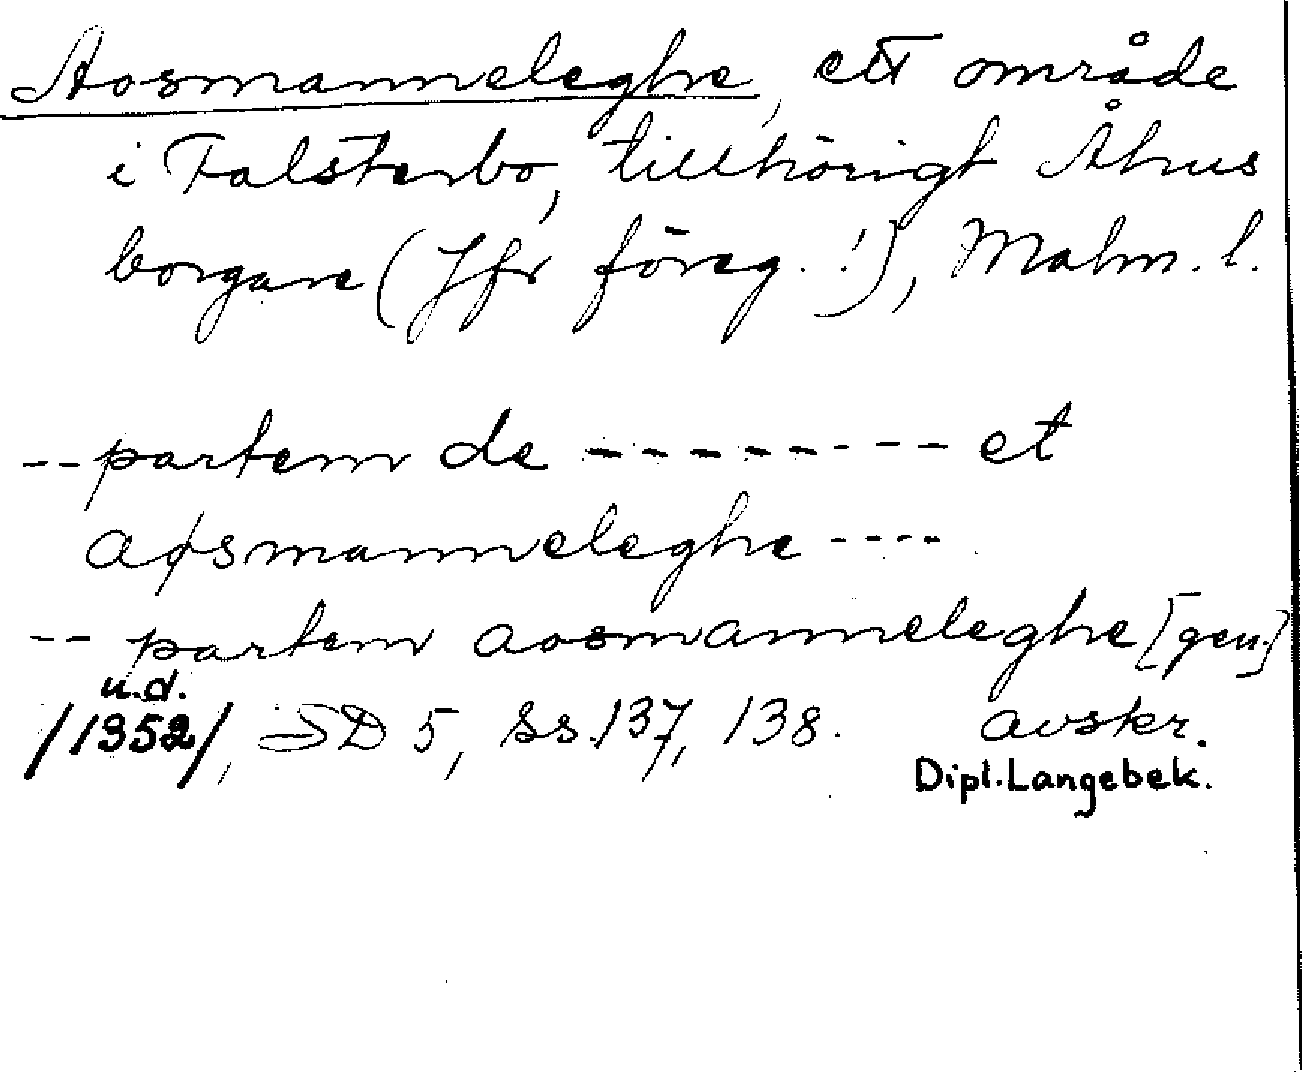 Aosmanneleghe, ett område
i Falsterbo, tillhörigt Åhus
borgare (Jfr föreg.!), Malm. l.
-- partem de --------- et
aøsmanneleghe ----
-- partem aosmanneleghe [gen.]
u.d.
/1352/, SD 5, ss. 137, 138. avskr.
Dipl. Langebek.